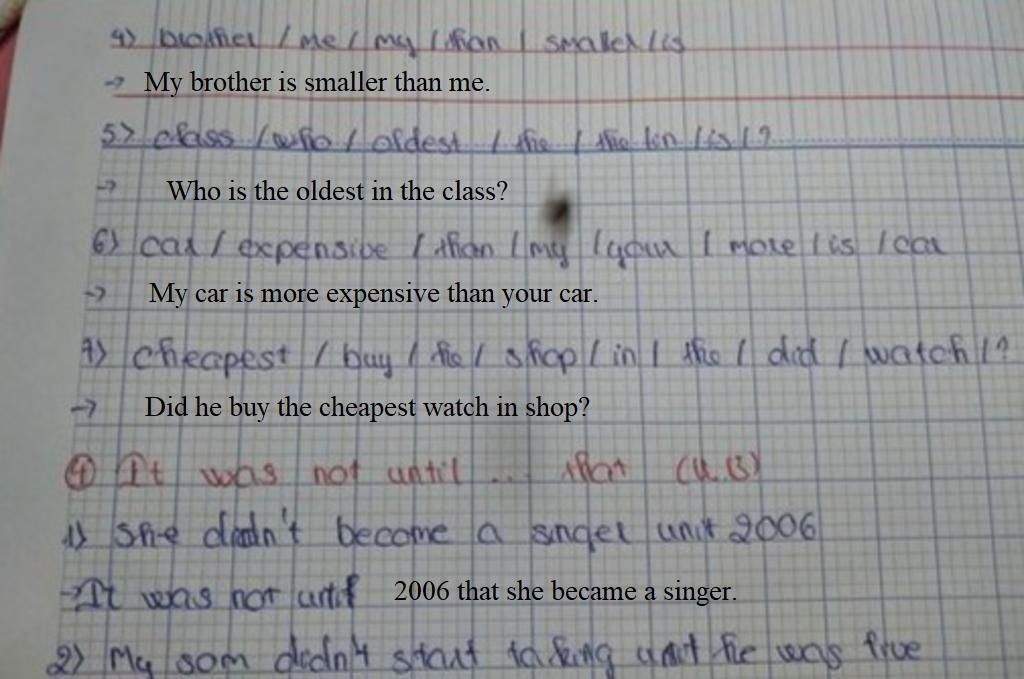 4) brother / me / my / than / smaller / is
→ My brother is smaller than me.
5) class / who / oldest / the / the / in / is / ?
→ Who is the oldest in the class?
6) car / expensive / than / my / your / more / is / car
→ My car is more expensive than your car.
7) cheapest / buy / he / shop / in / the / did / watch / ?
→ Did he buy the cheapest watch in shop?
④ It was not until ... that
1) She didn't become a singer until 2006
→ It was not until 2006 that she became a singer.
2) My son didn't start talking until he was five